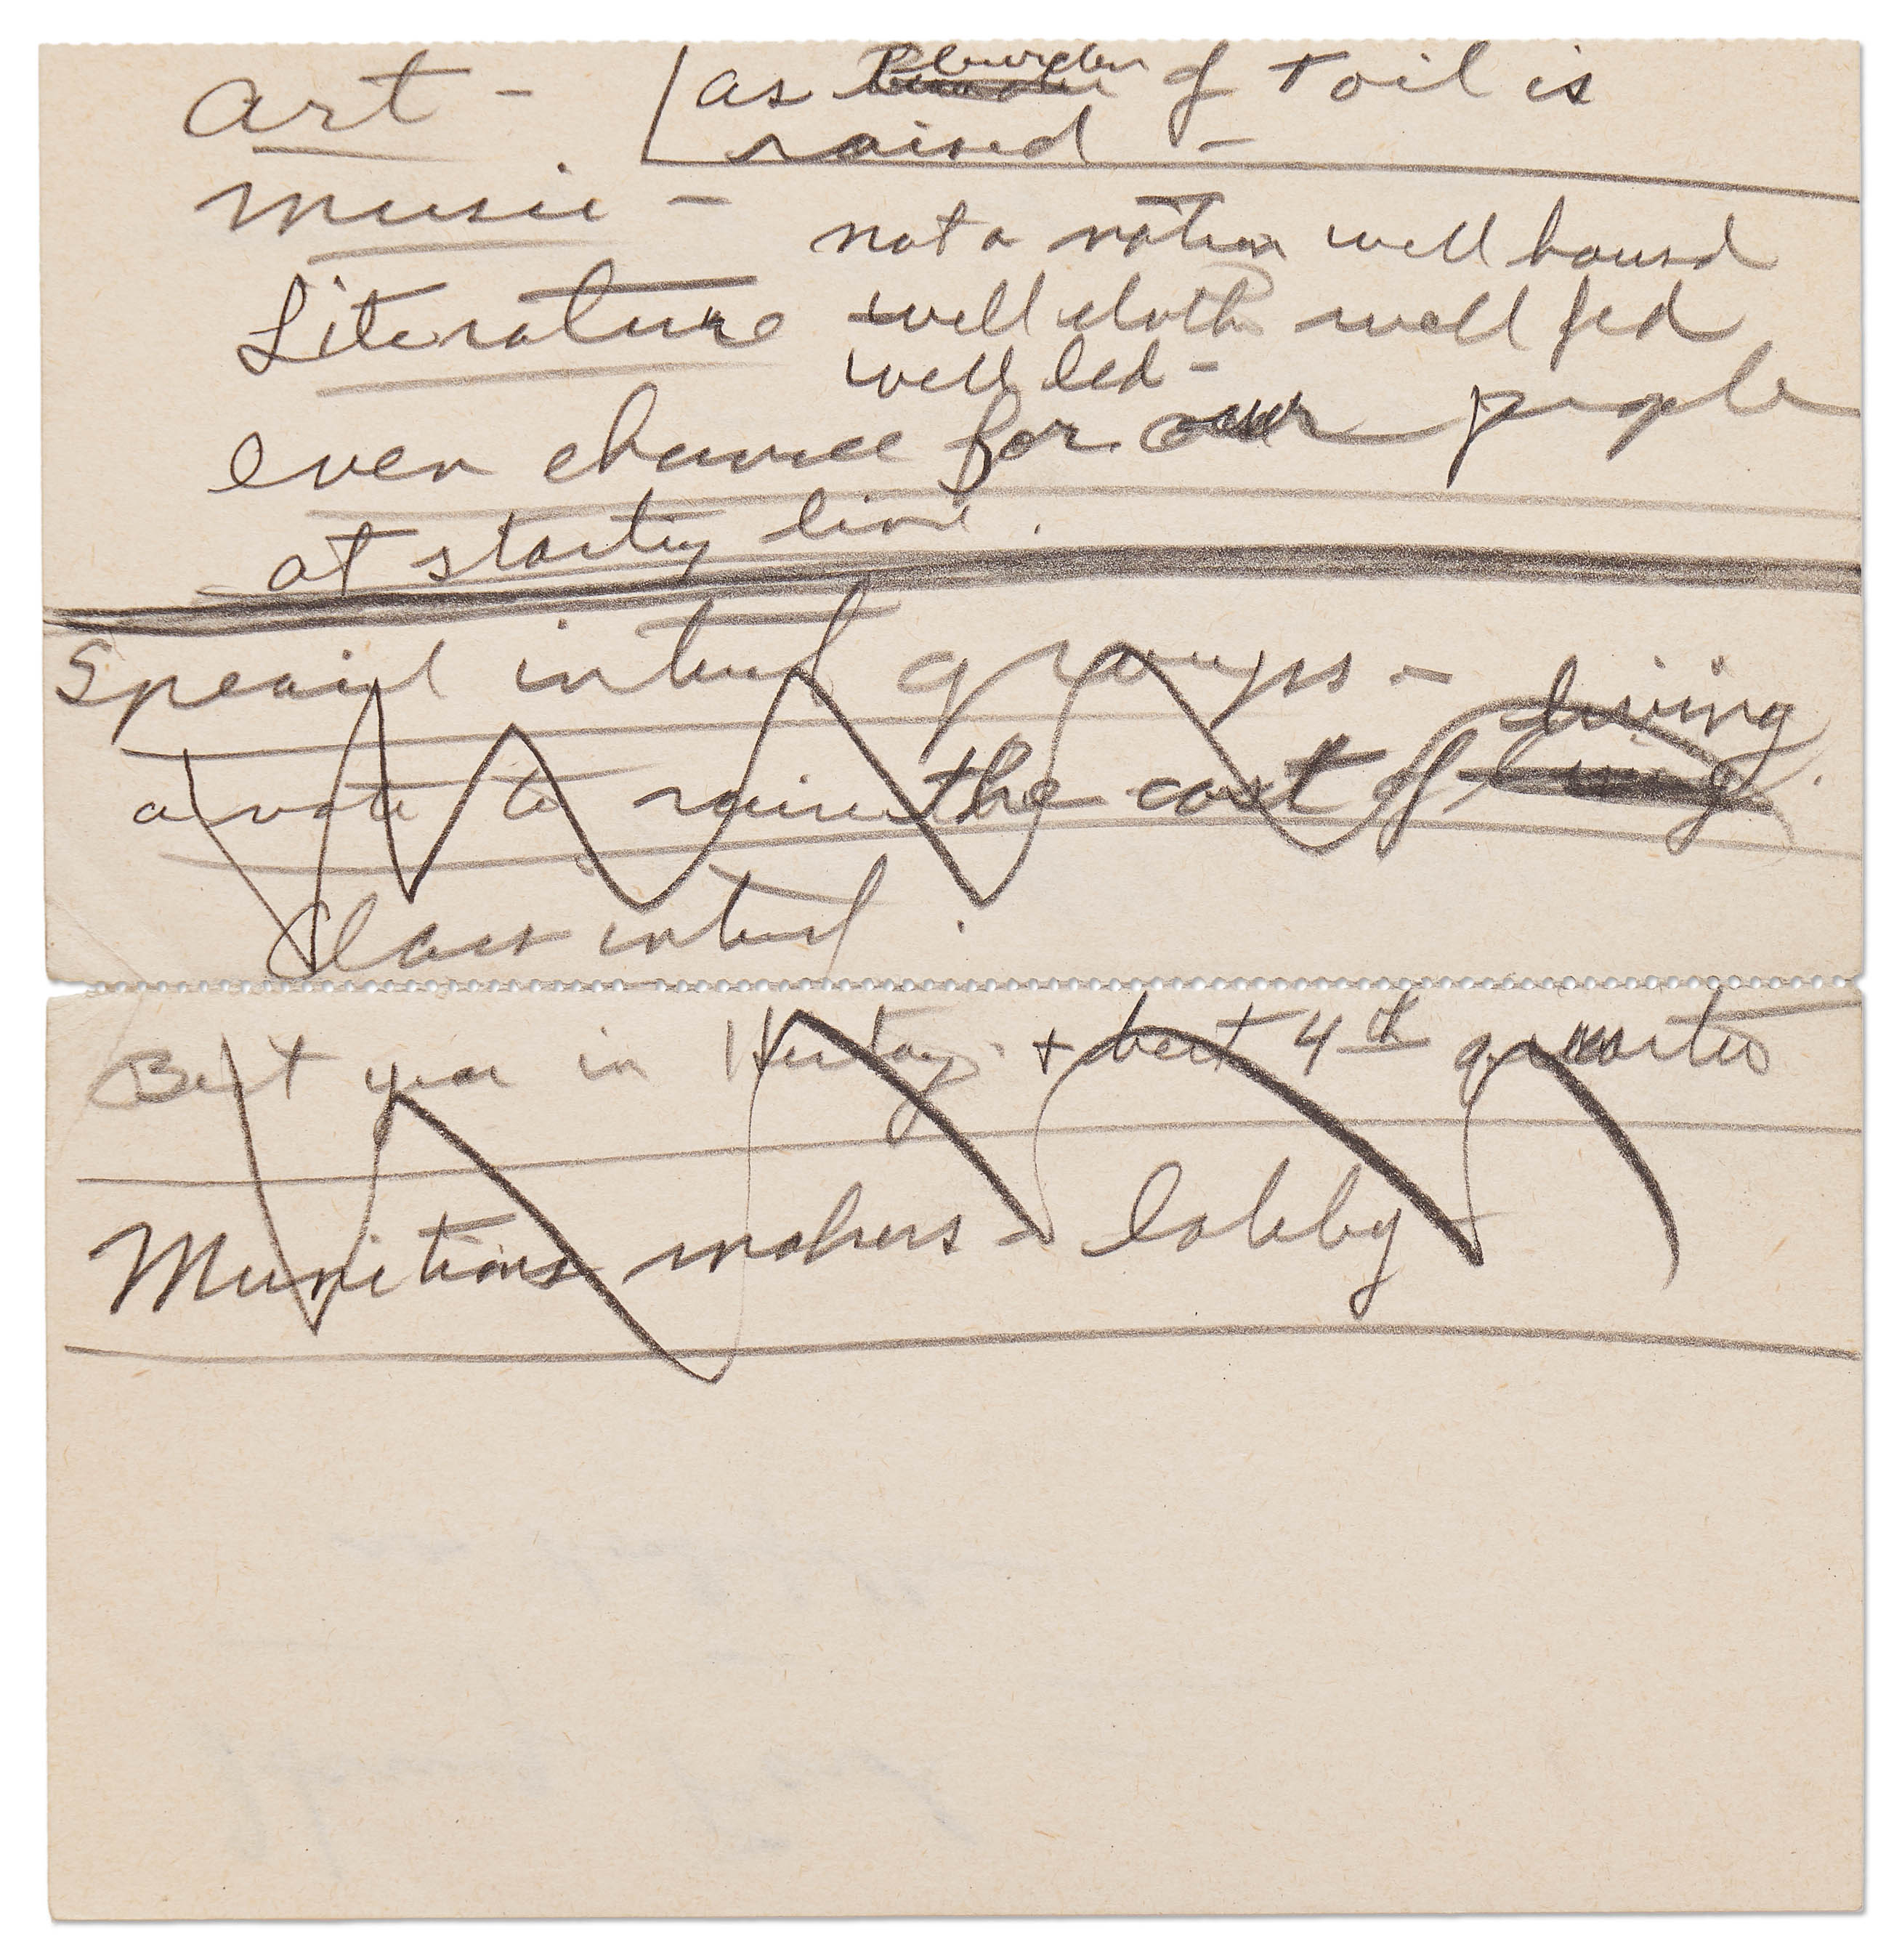 Art - as burden of toil is
raised -
Music -
not a nation well housed
Literature well cloth well fed
well led -
even chance for our people
at starting line.
Special interest groups -
a vote to raise the cost of living
living.
Class interest.
Best year in History + best 4th quarter
Munitions makers - lobby -